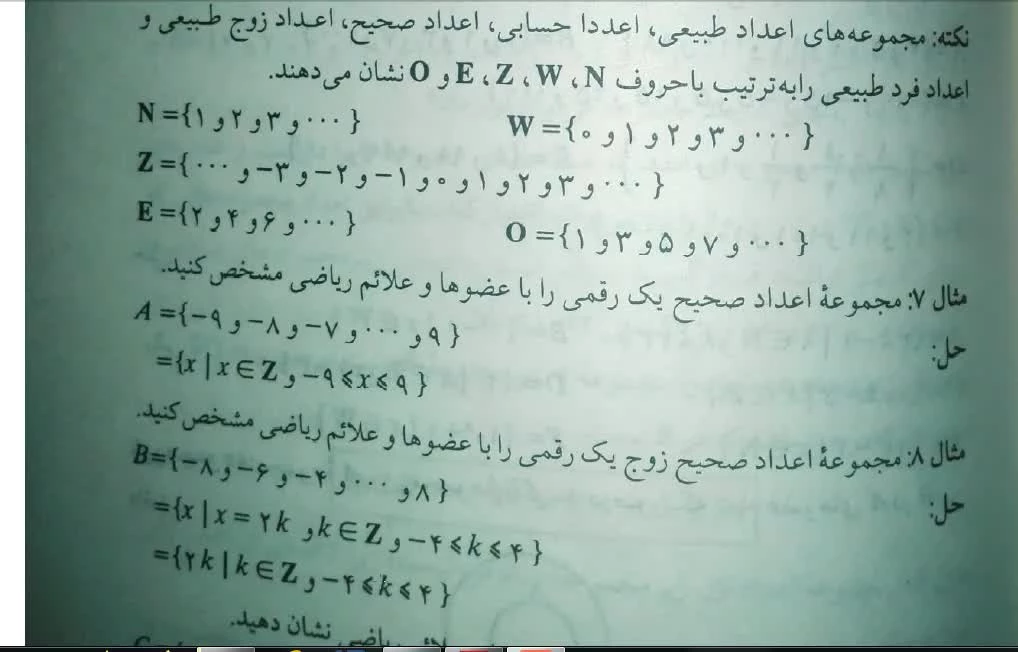 نکته: مجموعه‌های اعداد طبیعی، اعددا حسابی، اعداد صحیح، اعداد زوج طبیعی و
اعداد فرد طبیعی را به ترتیب با حروف N ، W ، Z ، E و O نشان می‌دهند.
N={۱ و ۲ و ۳ و ⋯}
W={۰ و ۱ و ۲ و ۳ و ⋯}
Z={⋯ و ۳− و ۲− و ۱− و ۰ و ۱ و ۲ و ۳ و ⋯}
E={۲ و ۴ و ۶ و ⋯}
O={۱ و ۳ و ۵ و ۷ و ⋯}
مثال ۷: مجموعهٔ اعداد صحیح یک رقمی را با عضوها و علائم ریاضی مشخص کنید.
حل:
A={−۹ و −۸ و −۷ و ⋯ و ۹}
={x | x∈Z و −۹⩽x⩽۹}
مثال ۸: مجموعهٔ اعداد صحیح زوج یک رقمی را با عضوها و علائم ریاضی مشخص کنید.
حل:
B={−۸ و −۶ و −۴ و ⋯ و ۸}
={x | x = ۲k و k∈Z و −۴⩽k⩽۴}
={۲k | k∈Z و −۴⩽k⩽۴}
ریاضی نشان دهید.